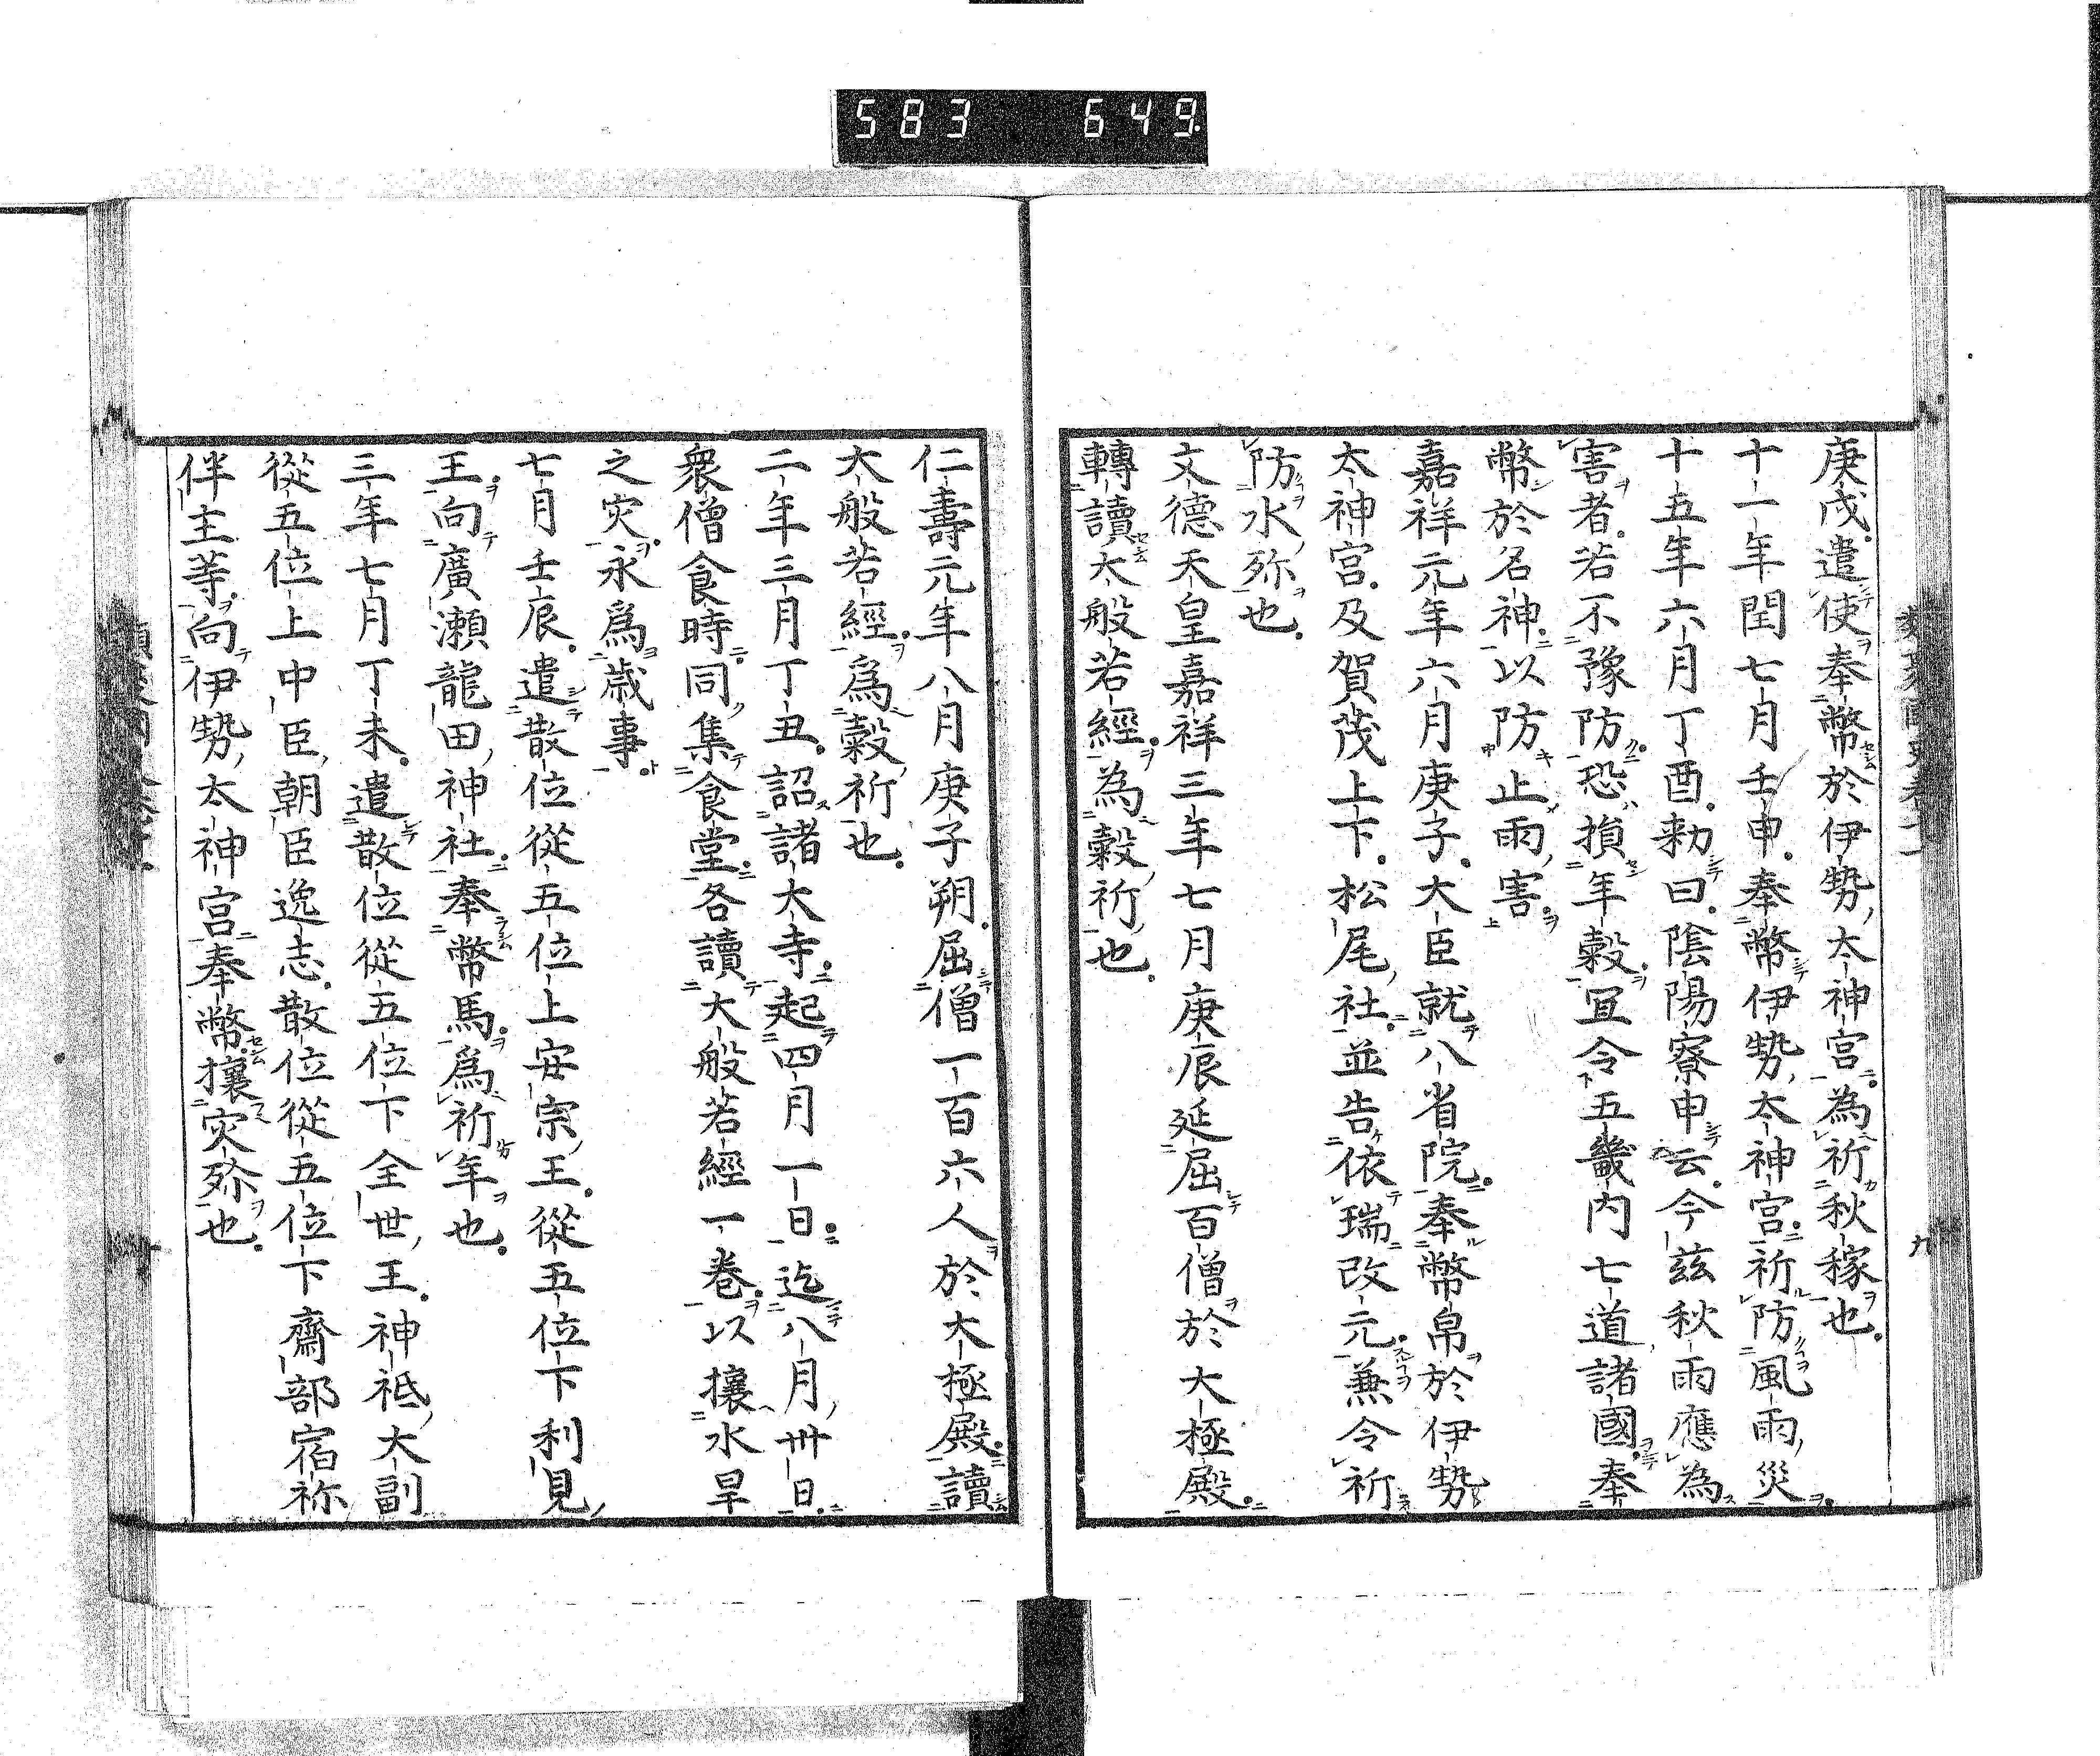 583 649
庚戌遣使奉幣於伊勢太神宮為祈秋稼也
十一年閏七月壬申奉幣伊勢太神宮祈防風雨災
十五年六月丁酉勅曰陰陽寮申云今玆秋雨應為
害者若不豫防恐損年穀冝令五畿内七道諸國奉
幣於名神以防止雨害
嘉祥元年六月庚子大臣就八省院奉幣帛於伊勢
太神宮及賀茂上下松尾社並告依瑞改元兼令祈
防水殃也
文德天皇嘉祥三年七月庚辰延屈百僧於大極殿
轉讀大般若經為穀祈也
九
仁壽元年八月庚子朔屈僧一百六人於大極殿讀
大般若經爲穀祈也
二年三月丁丑詔諸大寺起四月一日迄八月卅日
衆僧食時同集食堂各讀大般若經一卷以攘水旱
之灾永爲歳事
七月壬辰遣散位從五位上安宗王從五位下利見
王向廣瀬龍田神社奉幣馬爲祈年也
三年七月丁未遣散位從五位下全世王神祗大副
從五位上中臣朝臣逸志散位從五位下齋部宿祢
伴主等向伊勢太神宮奉幣攘灾殃也